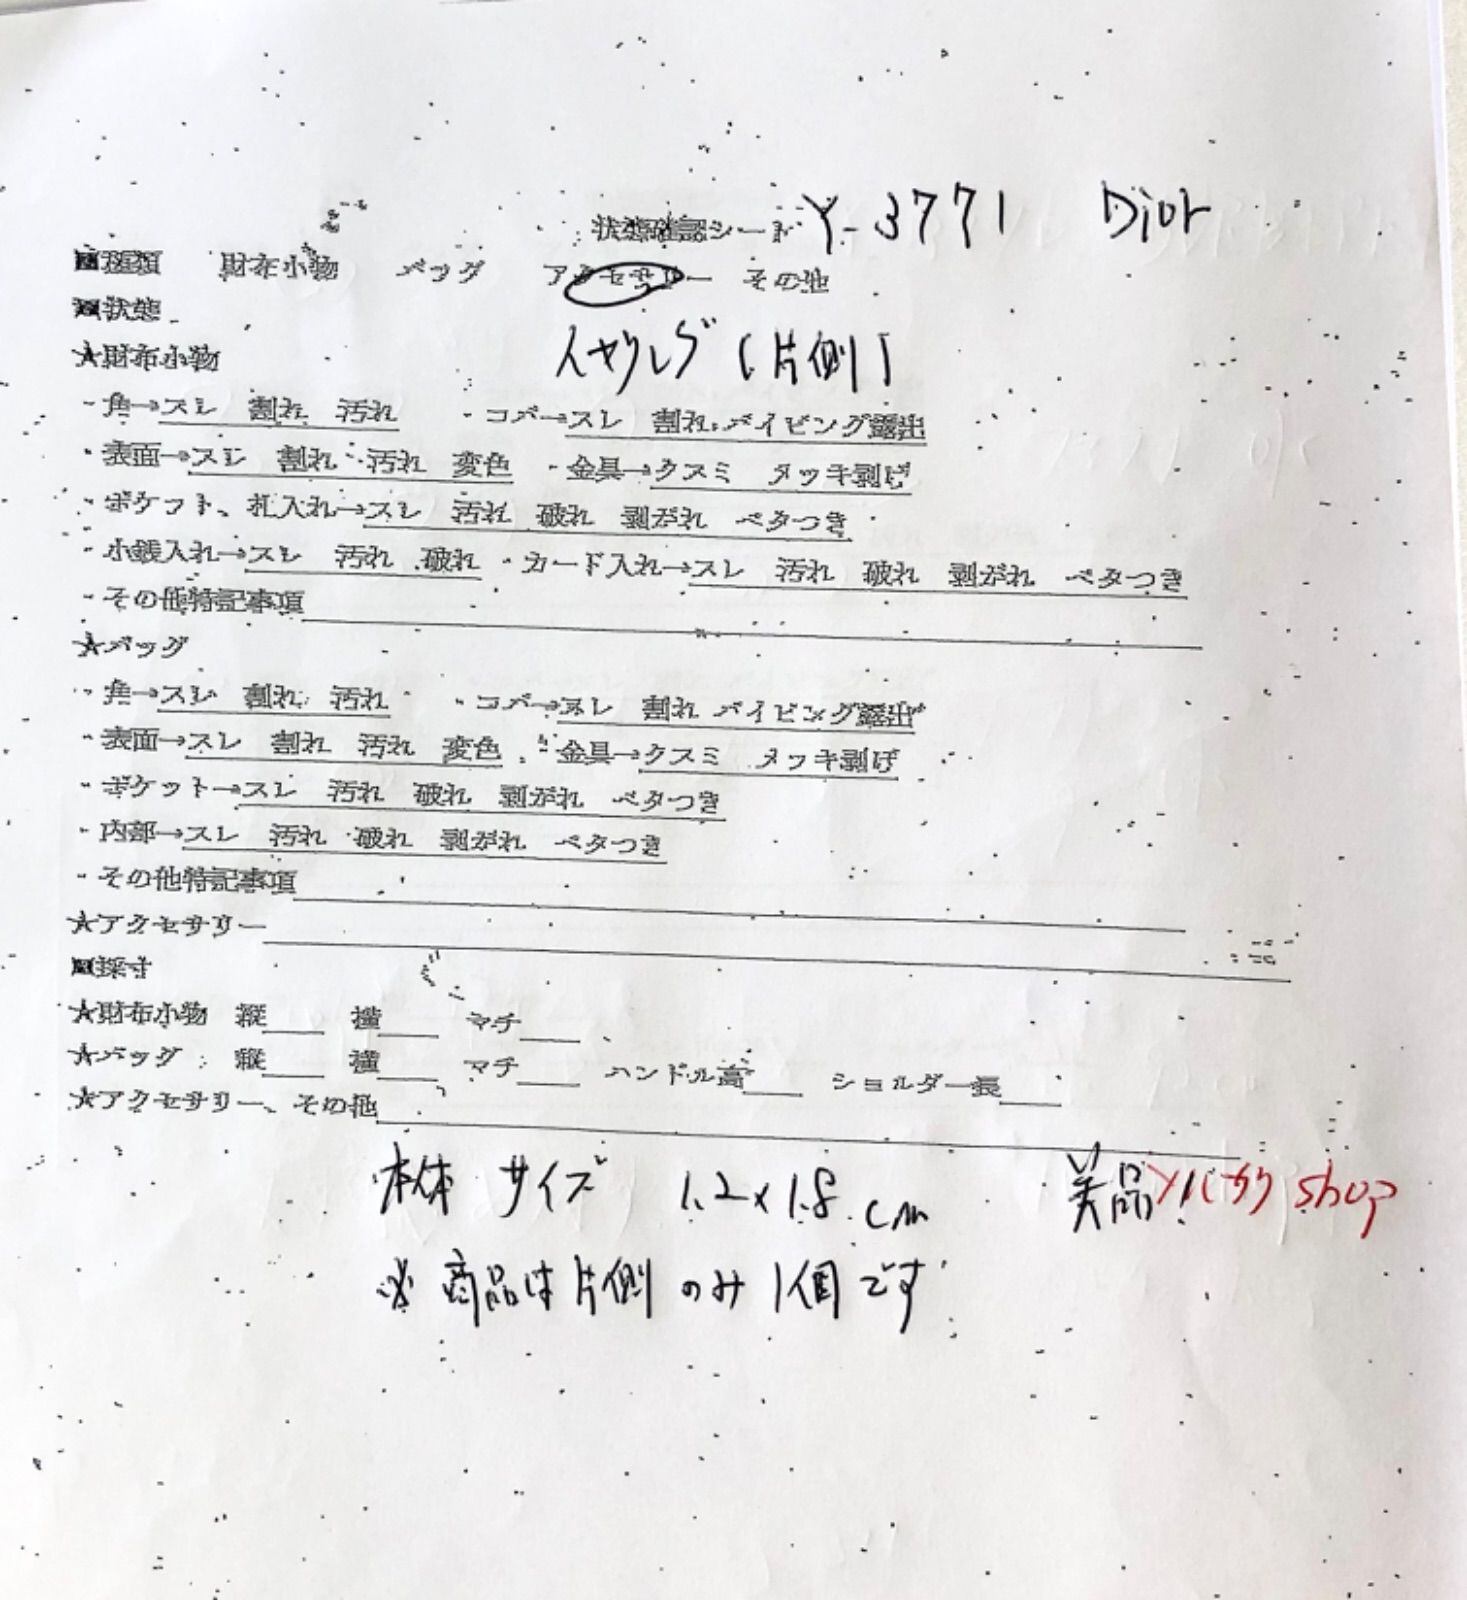 状態確認シート Y-3771 Dior
■種類 財布小物 バッグ アクセサリー その他
■状態
★財布小物 イヤリング (片側)
・角→スレ 割れ 汚れ ・コバ→スレ 割れ パイピング露出
・表面→スレ 割れ 汚れ 変色 ・金具→クスミ メッキ剥げ
・ポケット、札入れ→スレ 汚れ 破れ 剥がれ ベタつき
・小銭入れ→スレ 汚れ 破れ ・カード入れ→スレ 汚れ 破れ 剥がれ ベタつき
・その他特記事項
★バッグ
・角→スレ 割れ 汚れ ・コバ→スレ 割れ パイピング露出
・表面→スレ 割れ 汚れ 変色 ・金具→クスミ メッキ剥げ
・ポケット→スレ 汚れ 破れ 剥がれ ベタつき
・内部→スレ 汚れ 破れ 剥がれ ベタつき
・その他特記事項
★アクセサリー
■採寸
★財布小物 縦 横 マチ
★バッグ 縦 横 マチ ハンドル高 ショルダー長
★アクセサリー、その他
本体 サイズ 1.2×1.8cm 美品! shop
※商品は片側のみ1個です